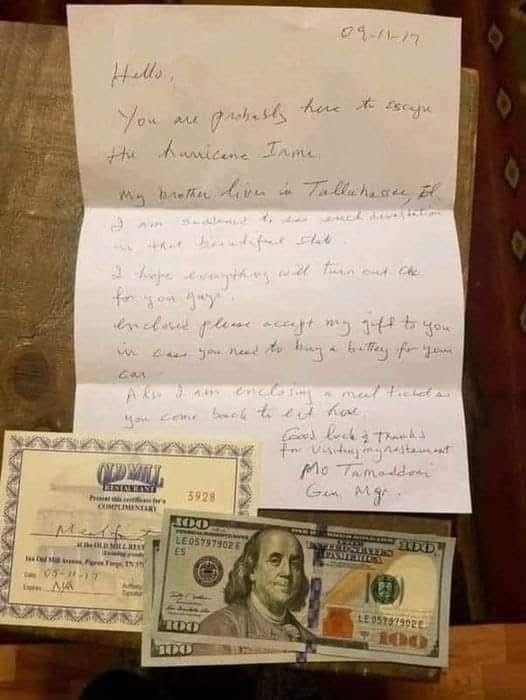 09-11-17
Hello,
You are probably here to escape
the hurricane Irma.
My brother lives in Tallahassee Fl.
I am saddened to see such devastation
in that beautiful state.
I hope everything will turn out ok
for you guys.
enclosed please accept my gift to you
in case you need to buy a battery for your
car
Also I am enclosing a meal ticket
you come back to eat here.
Good luck & Thanks
for visiting my restaurant
Mo Tamaddoni
Gen. Mgr.
OLD MILL
RESTAURANT
Present this certificate for a
COMPLIMENTARY
5928
Meal for
at the OLD MILL REST
Old Mill Avenue, Pigeon Forge, TN
Date 09-11-17
Expires N/A
100
LE05797902E
E5
UNITED STATES
OF AMERICA
100
LE05797902E
100
100
100